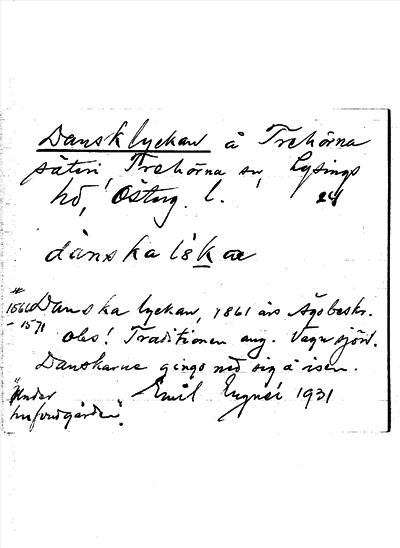 Dansklyckan å Trehörna
säteri, Trehörna sn, Lysings
hd, Östg. l. 24
dànska lỳkæ
Danska lyckan, 1861 års Ägobeskr.
#
1566
– 1571
obs! Traditionen ang. Vagnsjön.
Danskarne gingo ned sig å isen.
"Under
hufvudgården".
Emil 1931